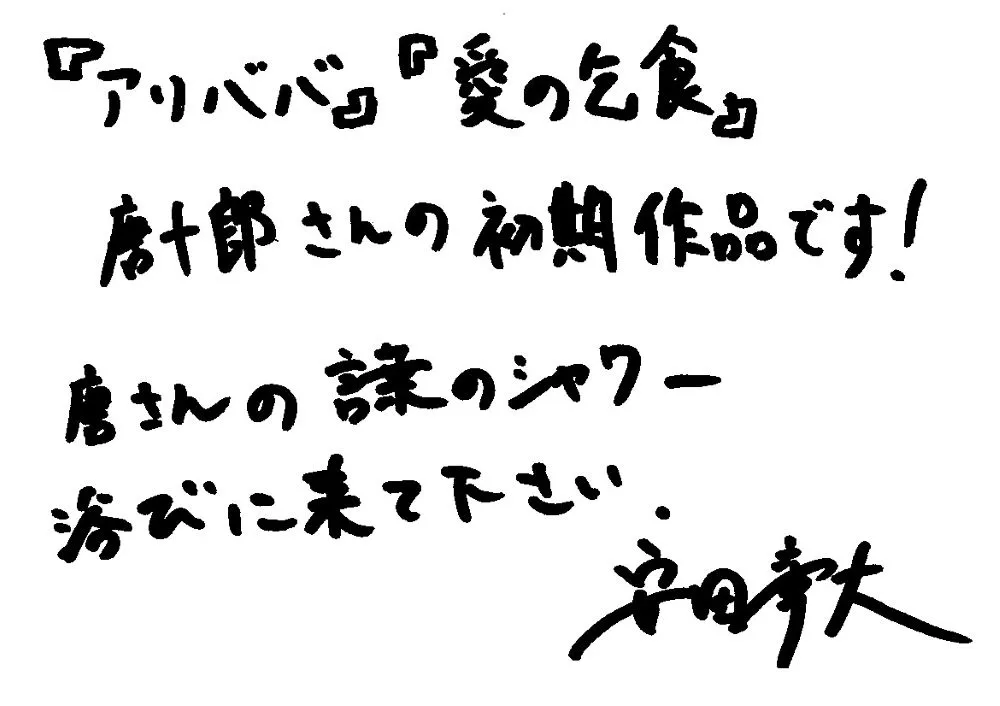 『アリババ』『愛の乞食』
唐十郎さんの初期作品です!
唐さんの言葉のシャワー
浴びに来て下さい.
安田章大